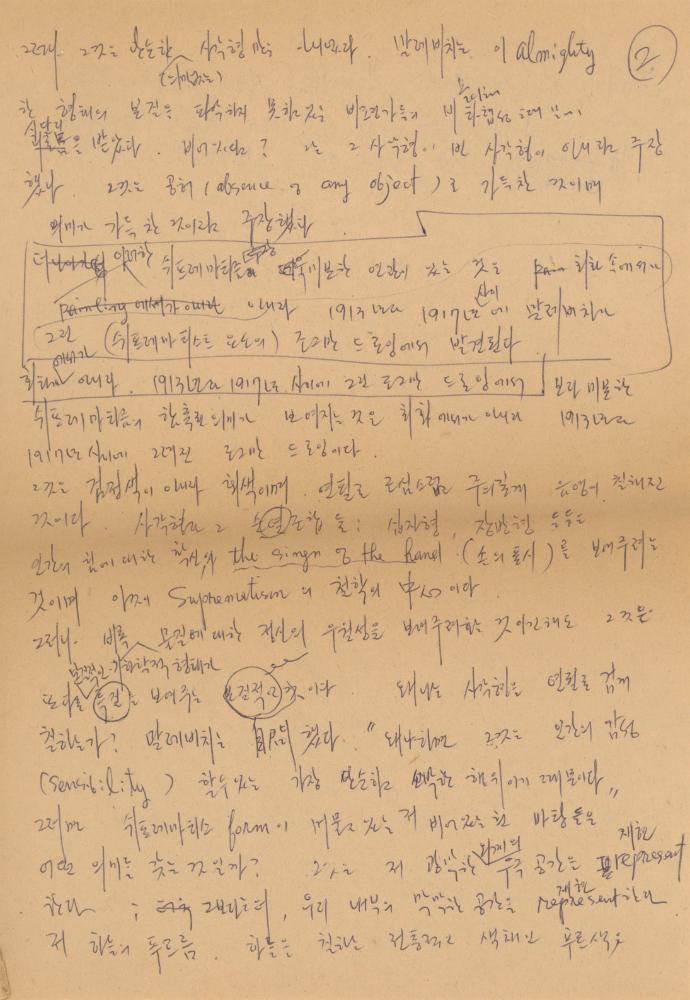 그러나 그것은 단순한 사각형만은 아니다. 말레비치는 이 almighty
②
(의미없는)
한 형태의 본질을 파악하지 못하고 있는 비평가들의 비
을 받았다. 비어있다? 나는 그 사각형이 빈 사각형이 아니라고 주장
했다. 그것은 공허 (absence of any object)로 가득찬 것이며
의미가 가득한 것이라고 주장했다.
쉬프레마티즘 미묘한 연관이 있는 것은 회화 속에서
painting 에서가 아니라 1913년과 1917년 사이에 말레비치가
그린 (쉬프레마티스트 요소의) 조그만 드로잉에서 발견된다
회화에서가 아니라. 1913년과 1917년 사이에 그린 조그만 드로잉에서 보다 미묘한
쉬프레마티즘의 함축된 의미가 보여지는 것은 회화에서가 아니라 1913년과
1917년 사이에 그려진 조그만 드로잉이다.
그것은 검정색이 아니라 회색이며 연필로 조심스럽고 주의깊게 음영이 칠해진
것이다. 사각형과 그 조합들: 십자형, 장방형 등등은
인간의 힘에 대한 확신의 the singn of the hand (손의 표시)를 보여주려는
것이며 Suprematism의 철학의 中心이다.
그러나 비록 물질에 대한 정신의 우월성을 보여주려하는 것이긴해도 그것은
본질적인 기하학적 형태가
또다른 특질을 보여주는 본질적인 것이다. 왜 나는 사각형을 연필로 검게
칠하는가? 말레비치는 自問했다. "왜냐하면 그것은 인간의 감성
(sensibility) 할 수 있는 가장 단순하고 소박한 행위이기 때문이다"
그러면 쉬프레마티즘 form이 머물고 있는 저 비어있는 흰 바탕들은
어떤 의미를 갖는 것일까? 그것은 저 광막한 우주 공간을 재현 represent
한다; 그보다 더, 우리 내부의 막막한 공간을 재현 represent 한다
저 하늘의 푸르름. 하늘을 칠하는 전통적인 색채인 푸른색은